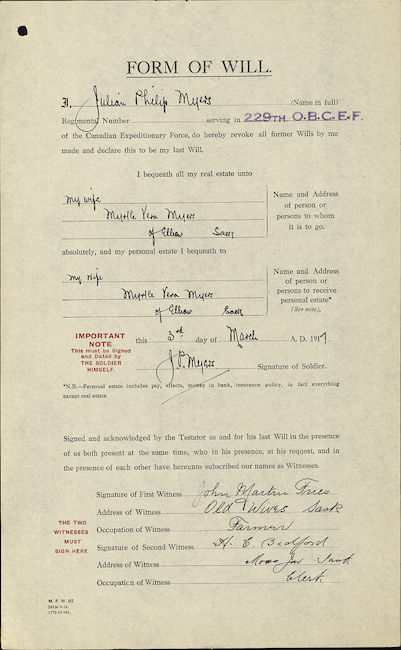 FORM OF WILL.
I, Julian Philip Myers (Name in full)
Regimental Number serving in 229TH. O.B.C.E.F.
of the Canadian Expeditionary Force, do hereby revoke all former Wills by me
made and declare this to be my last Will.
I bequeath all my real estate unto
my wife
Myrtle Vera Myers
of Elbow Sask
Name and Address
of person or
persons to whom
it is to go.
absolutely, and my personal estate I bequeath to
my wife
Myrtle Vera Myers
of Elbow Sask
Name and Address
of person or
persons to receive
personal estate*
(See note),
IMPORTANT
NOTE
This must be Signed
and Dated by
THE SOLDIER
HIMSELF.
this 3rd day of March A. D. 1917.
J.P. Myers Signature of Soldier.
*N.B.—Personal estate includes pay, effects, money in bank, insurance policy, in fact everything
except real estate.
Signed and acknowledged by the Testator as and for his last Will in the presence
of us both present at the same time, who in his presence, at his request, and in
the presence of each other have hereunto subscribed our names as Witnesses.
THE TWO
WITNESSES
MUST
SIGN HERE
Signature of First Witness John Martin Fries
Address of Witness Old Wives Sask
Occupation of Witness Farmer
Signature of Second Witness H. E. Bedford
Address of Witness Moose Jaw Sask
Occupation of Witness Clerk
M. F. W. 82